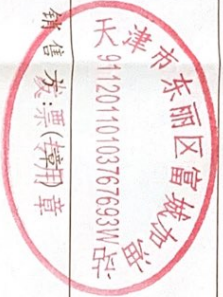 天津市东丽区富城
91120110103767693W
发票专用章
销售方:(章)